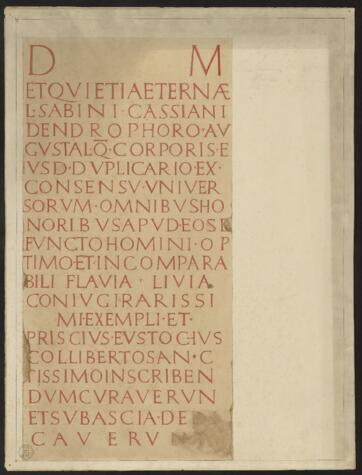 D M
ETQVIETIAETERNÆ
L·SABINI·CASSIANI
DENDROPHORO·AV
GVSTAL·Q·CORPORIS·E
IVSD·DVPLICARIO·EX·
CONSENSV·VNIVER
SORVM·OMNIBVSHO
NORIBVSAPVDEOSD
FVNCTOHOMINI·OP
TIMO·ET·INCOMPARA
BILI FLAVIA · LIVIA
CONIVGI·RARISSI
MI·EXEMPLI·ET·
PRISCIVS·EVSTOCHVS
COLLIBERTOSAN·C
TISSIMOINSCRIBEN
DVMCVRAVERVN
ETSVBASCIA·DE
CAVERV